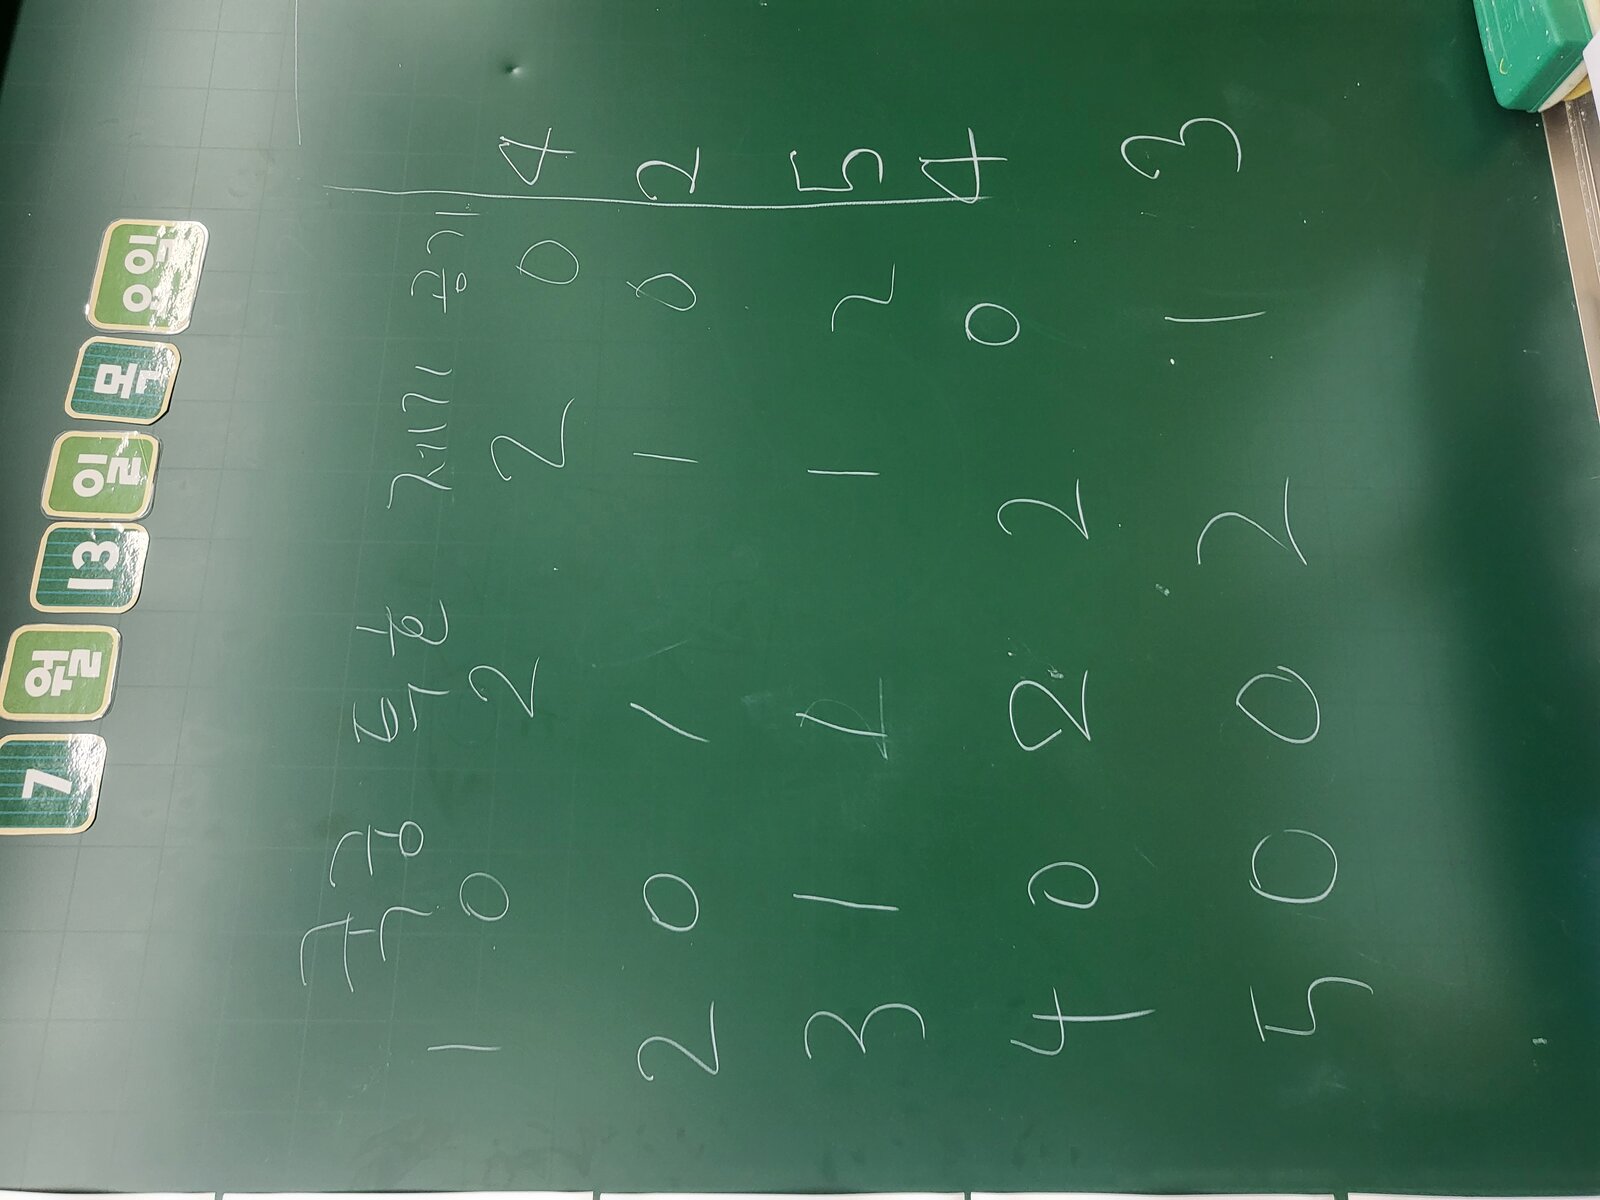 7 월 13 일 목 요일
국궁 투호 제기 공기
1 0 2 2 0 4
2 0 1 1 0 2
3 1 1 1 2 5
4 0 2 2 0 4
5 0 0 2 1 3